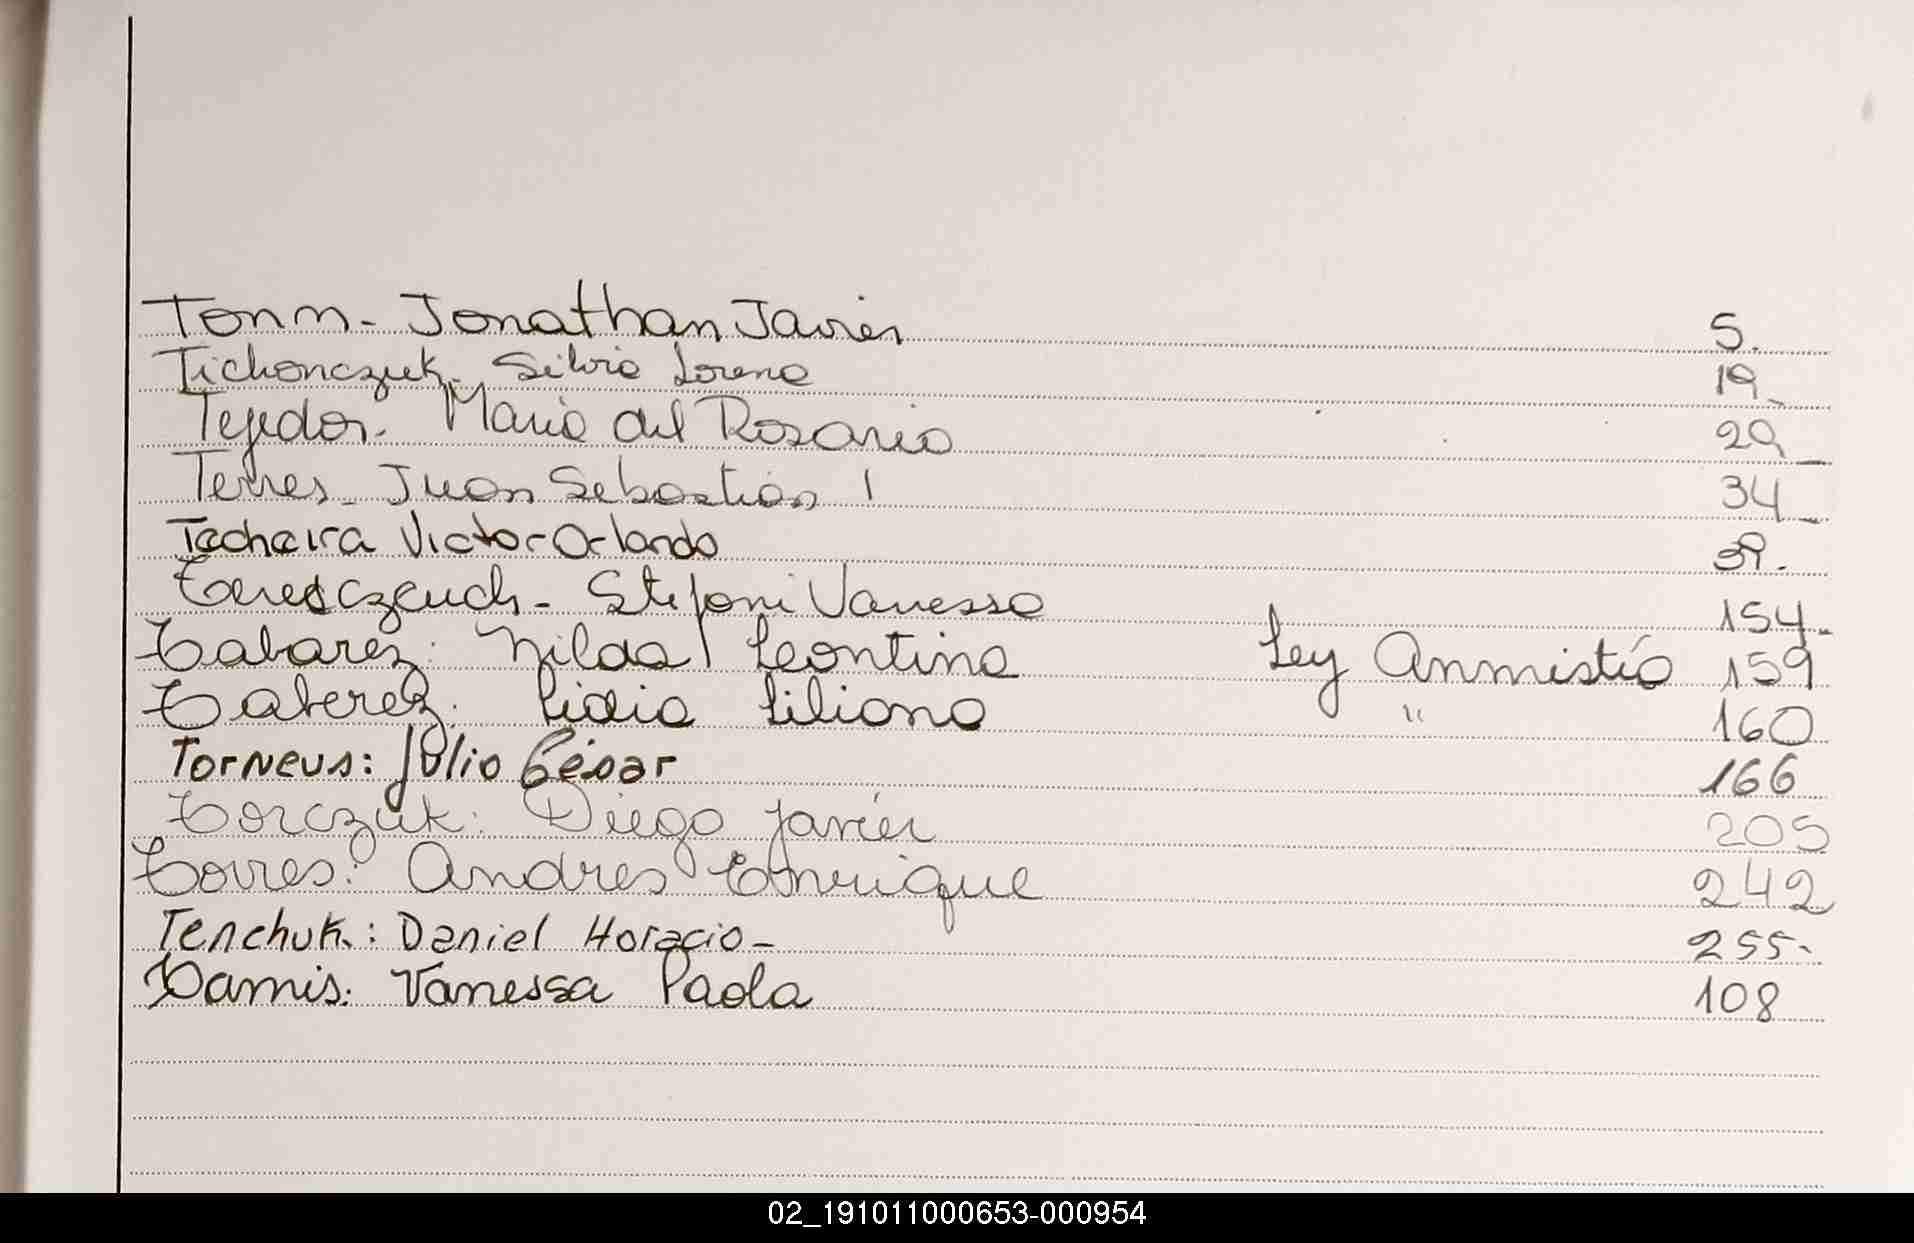 Tonn - Jonathan Javier 5.
Tichonczuk - Silvia Lorena 19
Tejedor - Maria del Rosario 29
Terres - Juan Sebastián 34
Techeira Victor Orlando 39.
Teresczcuch - Stefani Vanessa 154
Tabarez: Nilda Leontina Ley Anmistía 159
Taberez: Lidia Liliana " 160
Torneus: Júlio César 166
Torczuk: Diego Javier 205
Torres: Andres Enrique 242
Tenchuk: Daniel Horacio - 255-
Tamis: Vanessa Paola 108
02_191011000653-000954